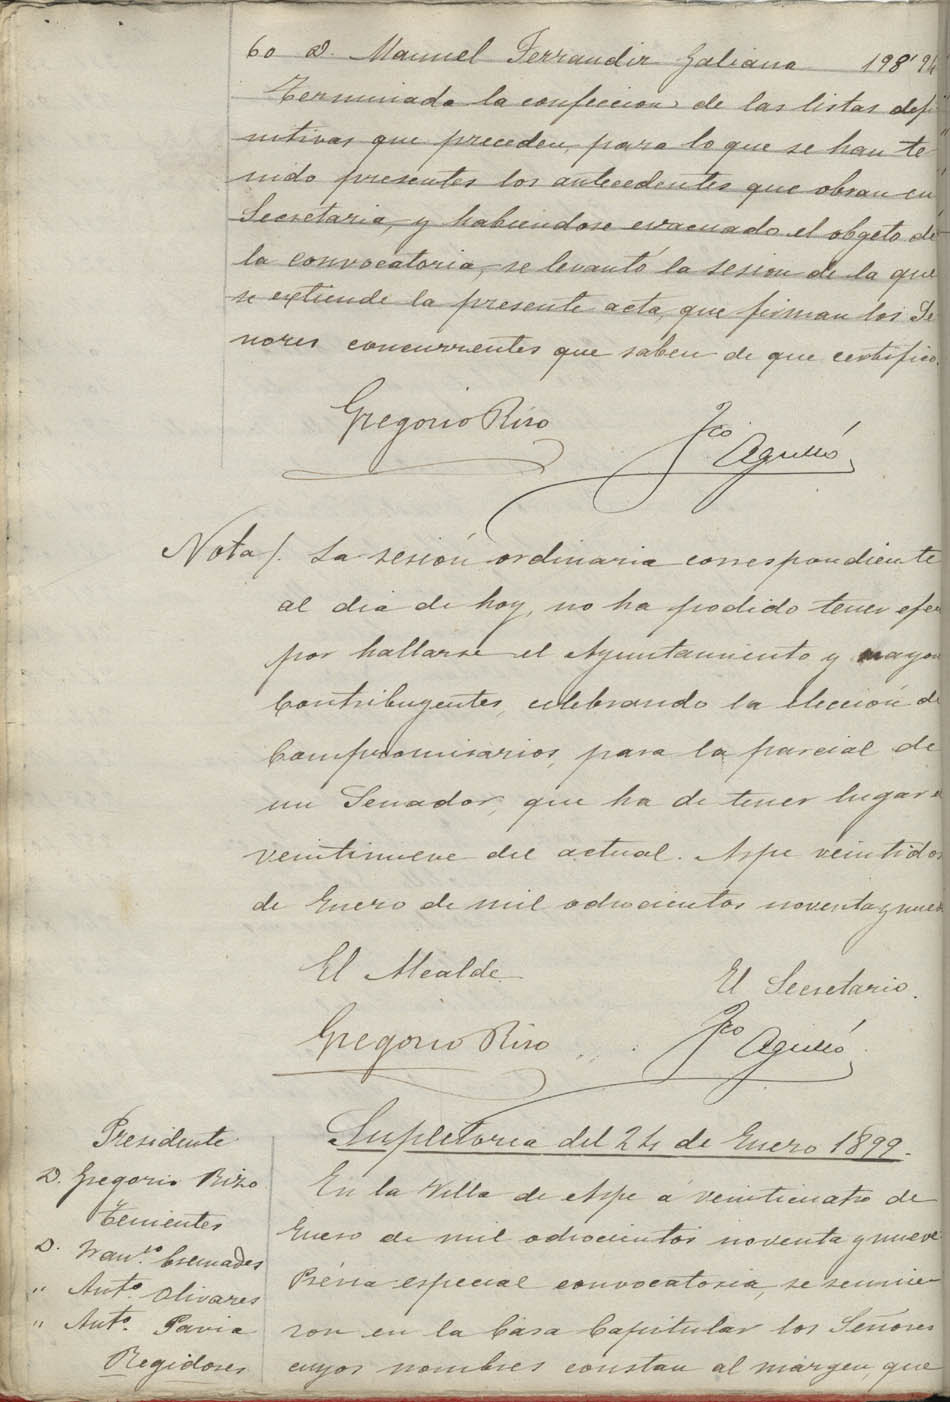 60 D. Manuel Ferrandiz Galiano 198'94
Terminada la confeccion de las listas defi
nitivas que preceden, para lo que se han te
nido presentes los antecedentes que obran en
Secretaria, y habiendose evacuado el objeto de
la convocatoria, se levantó la sesion de la que
se extiende la presente acta, que firman los Se
nores concurrentes que saben de que certifico.
Gregorio Rizo
Fco Agulló
Nota/. La sesión ordinaria correspondiente
al dia de hoy, no ha podido tener efec
por hallarse el Ayuntamiento y mayor
Contribuyentes, celebrando la elección de
Compromisarios, para la parcial de
un Senador, que ha de tener lugar e
veintinueve del actual. Aspe veintidos
de Enero de mil ochocientos noventa y nueve
El Alcalde
El Secretario.
Gregorio Rizo
Fco Agulló
Presidente
D. Gregorio Rizo
Tenientes
D. Franco. Cremades
" Anto. Olivares
" Anto. Pavia
Regidores
Supletoria del 24 de Enero 1899.
En la Villa de Aspe á veinticuatro de
Enero de mil ochocientos noventa y nueve
Prévia especial convocatoria, se reunie
ron en la Casa Capitular los Señores
cuyos nombres constan al márgen, que